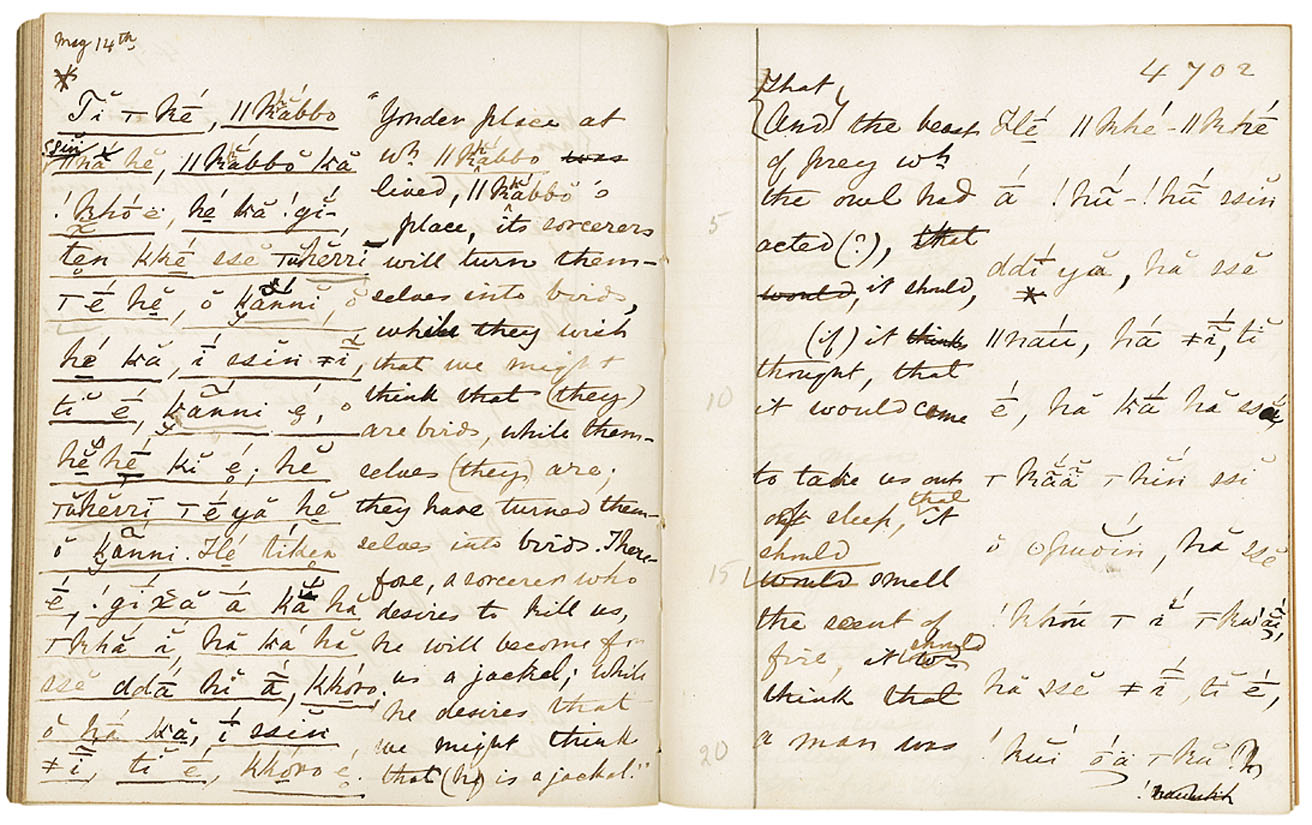 May 14th
Tĭ ꞱKé, ||Kábbo
hĕ, ||Kábbŏ kă
!khóë, hé kă !gĭ-
ten kké ssĕ
Ʇé hĕ, ŏ kănnĭ, ŏ
hé kă, ī́ ssĭn ≠ī,
tĭ é, kắnnĭ ẹ, ŏ
hĕ hé kĭ é; hĕ
Ʇuhĕrri Ʇéyă hĕ
ŏ kănnĭ. Hé tíken
é, !gíxă á kă hă
Ʇkhă ĭ, hă ká hă
ssĕ ddā́ hĭ ā́, kkóro.
ŏ há kă, ī́ ssĭn
≠ī, tĭ é, khóro é.
"Yonder place at
wh ||Kábbo was
lived, ||Kábbŏ's
place, its sorcerers
will turn them-
selves into birds,
while they wish
that we might
think that (they)
are birds, while them-
selves (they) are;
they have turned them-
selves into birds. There-
fore, a sorcerer who
desires to kill us,
he will become for
us a jackal; while
he desires that
we might think
that (he) is a jackal."
4702
That
(And) the beast
of prey wh
the owl had
acted (?), that
would, it should,
(if) it think
thought, that
it would come
to take us out
of sleep, that it
should
would smell
the scent of
fire, it should
think that
a man was
Hé ||khé-||khé
á !hŭ-!hŭ ssĭn
ddí yă, hă ssĕ
||nāú, há ≠ī́, tĭ
é, hă ká hă ssĕ
Ʇkắă Ʇhĭn ssĭ
ŏ ʘpwoĭn, hă ssĕ
!khóu Ʇĭ
hă ssĕ ≠ī́, tĭ é,
!kuí óä Ʇkŭ
5
10
15
20